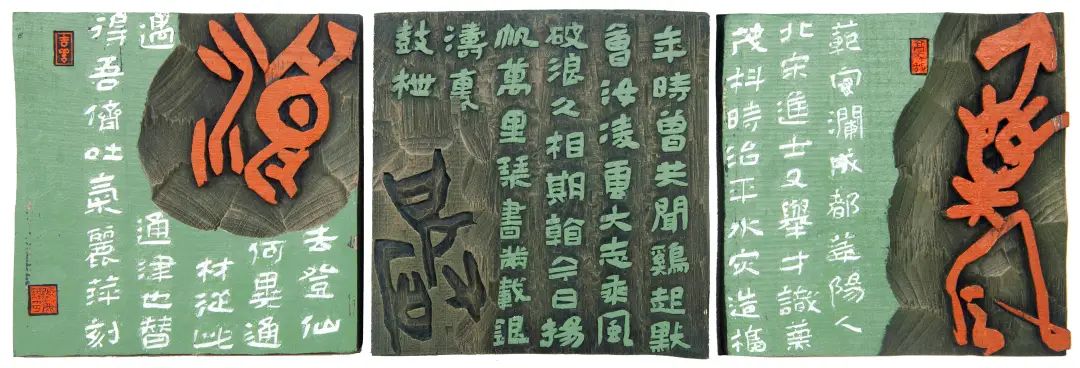 範瀾成都華陽人
北宋進士又舉才識兼
茂科時治平水災造
年時曾共聞雞起默
會汝凌霄大志乘風
破浪久相期翰今日揚
帆萬里琴書滿載銀
濤裏
鼓枻
去登仙
何異通
材從此
遇通津也替
得吾儕吐氣麗萍刻